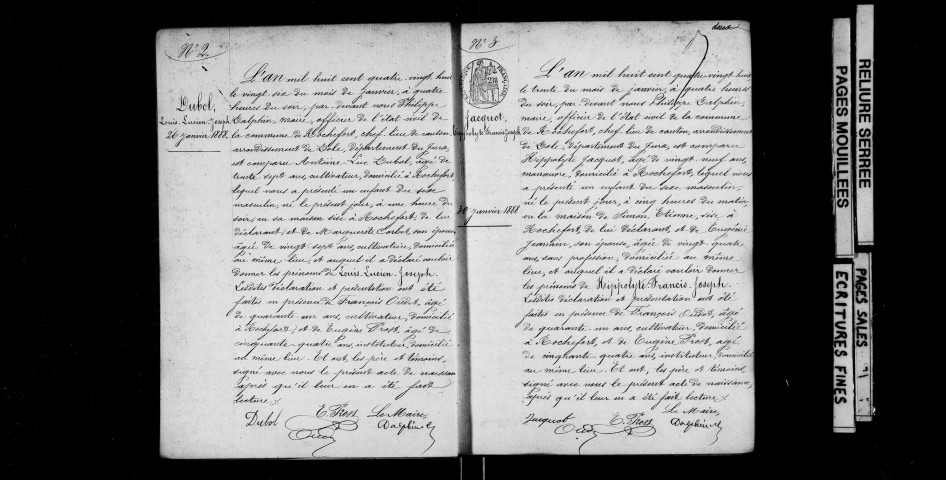 N° 2.
Dubol,
Louis-Lucien-Joseph.
26 Janvier 1888.
L'an mil huit cent quatre vingt huit
le vingt six du mois de Janvier, à quatre
heures du soir, par devant nous Philippe
Dalphin, maire, officier de l'état civil de
la commune de Rochefort, chef-lieu de canton,
arrondissement de Dole, département du Jura,
est comparu Antoine-Luc Dubol, âgé de
trente sept ans, cultivateur, domicilié à Rochefort,
lequel nous a présenté un enfant du sexe
masculin, né le présent jour, à une heure du
soir, en sa maison sise à Rochefort, de lui
déclarant, et de Marguerite son épouse
âgée de vingt-sept ans, cultivatrice, domiciliée
au même lieu, et auquel il a déclaré vouloir
donner les prénoms de Louis-Lucien-Joseph.
Lesdites déclaration et présentation ont été
faites en présence de François âgé
de quarante un ans, cultivateur, domicilié
à Rochefort, et de Eugène Trost, âgé de
cinquante-quatre ans, instituteur, domicilié
au même lieu. Et ont, les père et témoins,
signé avec nous le présent acte de naissance
après qu'il leur en a été fait
lecture.
Dubol E. Trost Le Maire,
Dalphin
N° 3
Jacquot,
Hippolyte Francis Joseph
30 Janvier 1888
L'an mil huit cent quatre-vingt huit
le trente du mois de Janvier, à quatre heures
du soir, par devant nous Philippe Dalphin,
maire, officier de l'état civil de la commune
de Rochefort, chef-lieu de canton, arrondissement
de Dole, département du Jura, est comparu
Hippolyte Jacquot, âgé de vingt-neuf ans,
manœuvre, domicilié à Rochefort, lequel nous
a présenté un enfant du sexe masculin,
né le présent jour, à cinq heures du matin,
en la maison de Simon, Etienne, sise à
Rochefort, de lui déclarant, et de Eugénie
Jeannin, son épouse, âgée de vingt-quatre
ans, sans profession, domiciliée au même
lieu, et auquel il a déclaré vouloir donner
les prénoms de Hippolyte-Francis-Joseph.
Lesdites déclaration et présentation ont été
faites en présence de François âgé
de quarante-un ans, cultivateur, domicilié
à Rochefort, et de Eugène Trost, âgé
de cinquante-quatre ans, instituteur, domicilié
au même lieu. Et ont, les père et témoins,
signé avec nous le présent acte de naissance,
après qu'il leur en a été fait lecture.
Jacquot E. Trost Le Maire,
Dalphin
RELIURE SERREE
PAGES MOUILLEES
PAGES SALES
ECRITURES FINES